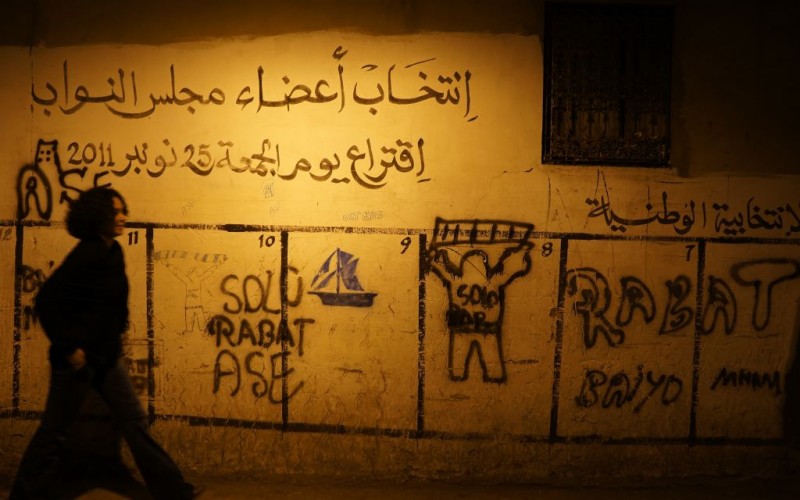 إنتخاب أعضاء مجلس النواب
إقتراع يوم الجمعة 25 نونبر 2011
الإنتخابية الوطنية
ASE
12
11
10
9
8
7
SOLO
RABAT
ASE
SOLO
RABAT
BAIYO